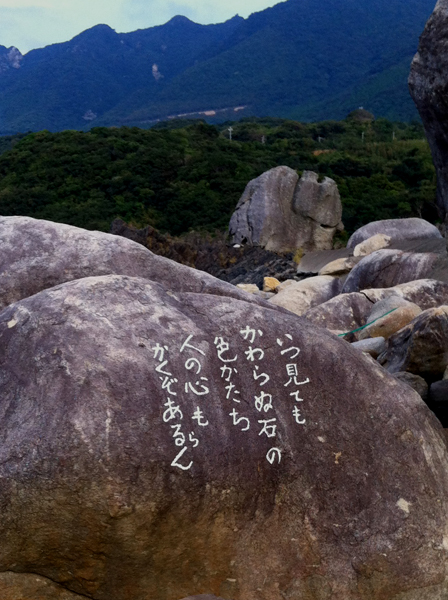 いつ見ても
かわらぬ石の
色かたち
人の心もら
かくぞあるらん